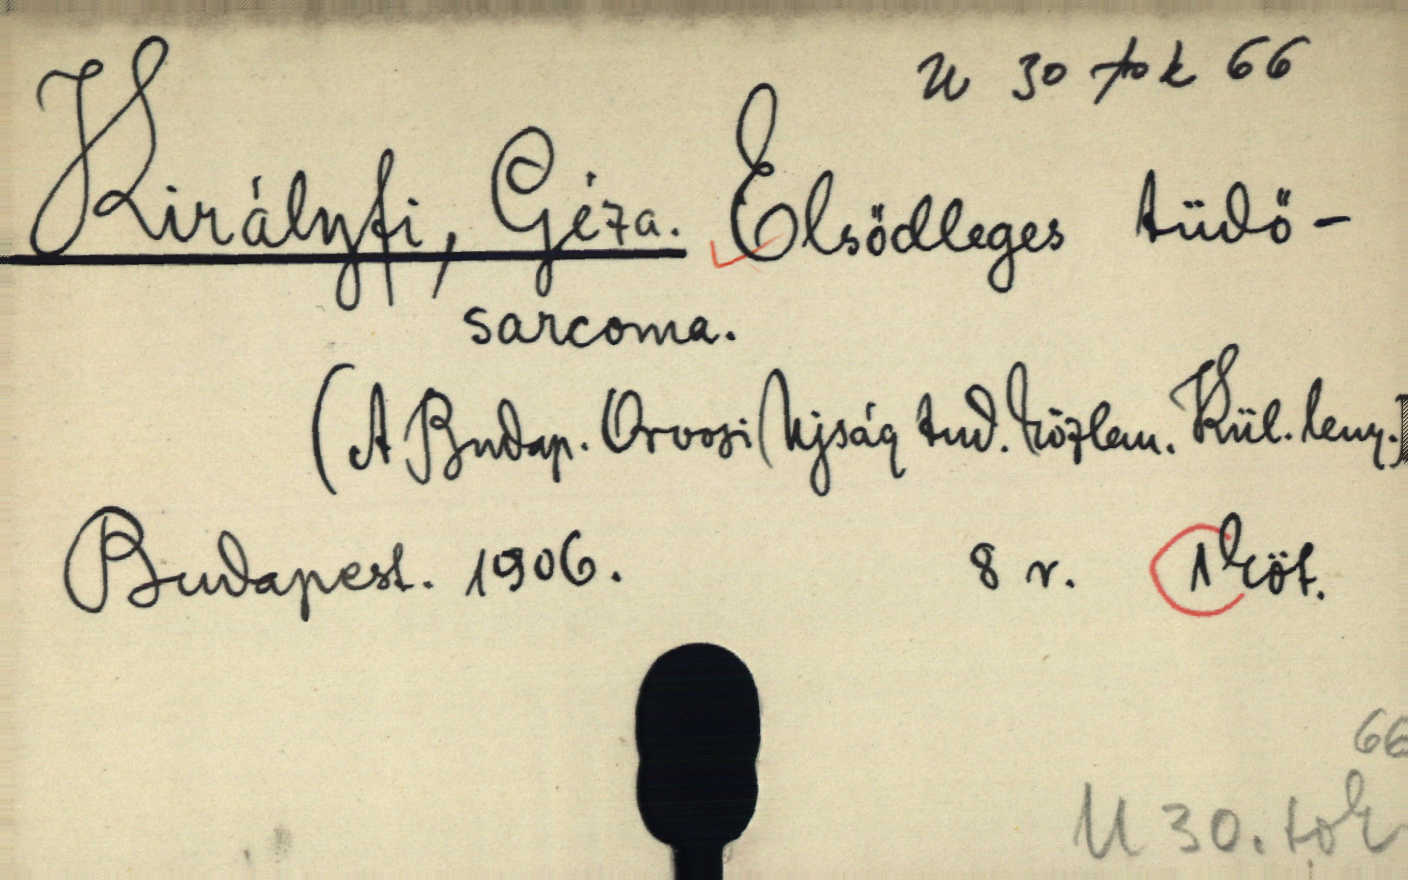 U 30 tok 66
Királyfi, Géza. Elsödleges tüdö-
sarcoma.
(A Budap. Orvosi Ujság tud. közlem. Kül. leny.)
Budapest. 1906. 8 r. 1 köt.
66
U 30. tok